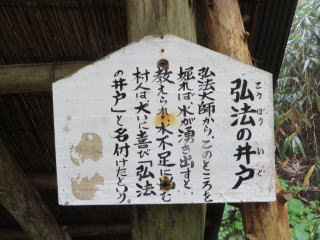 弘法の井戸
こうぼう いど
弘法大師から、このところを
堀れば水が湧き出すと、
教えられ、水不足に悩む
村人は大いに喜び「弘法
の井戸」と名付けたという。